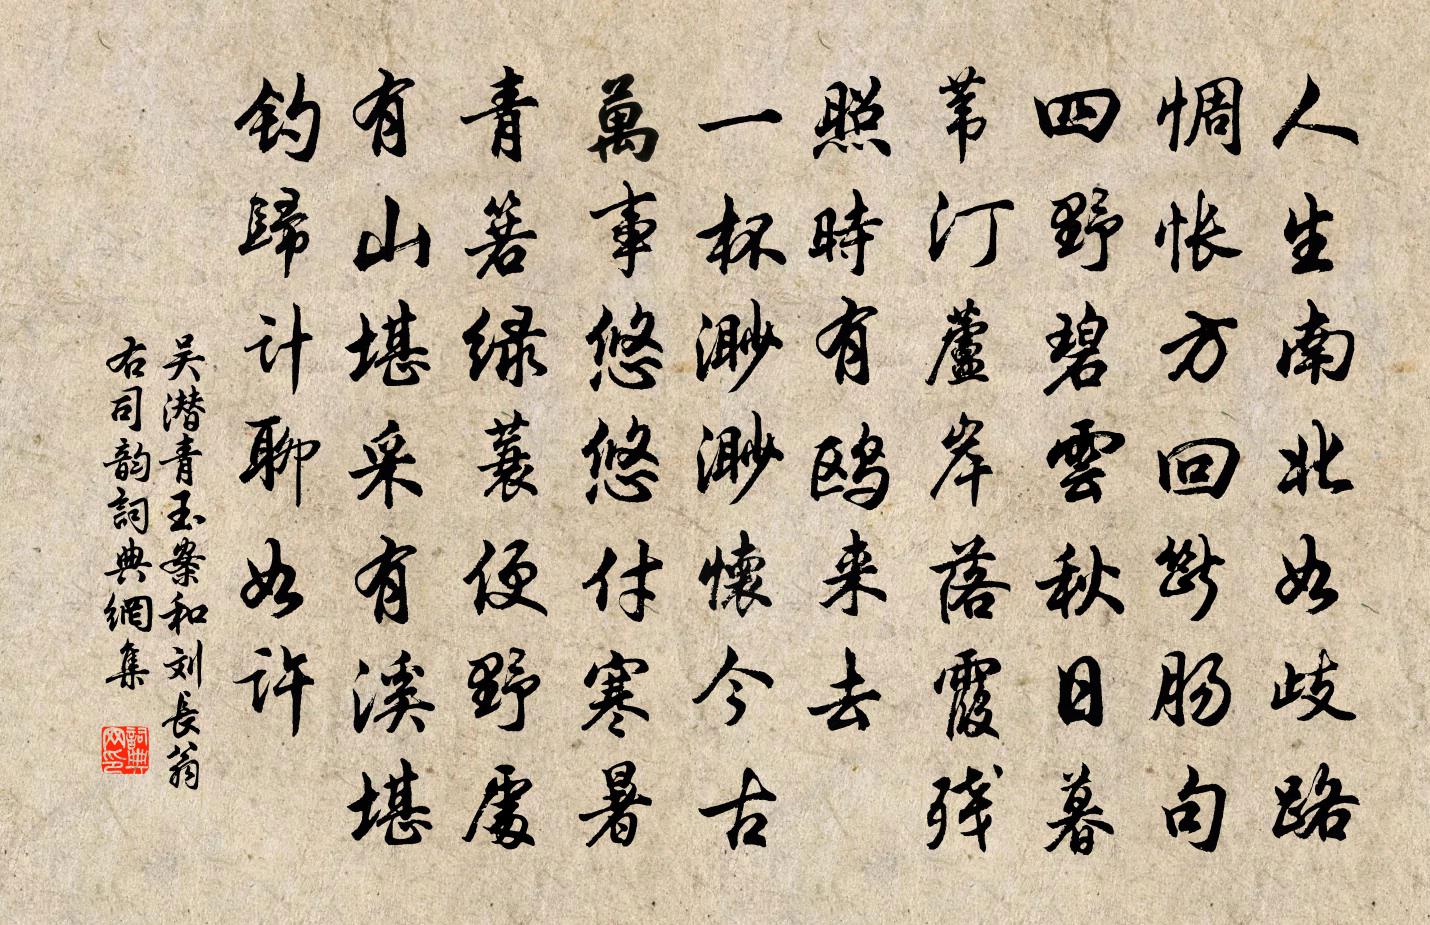 人生南北如歧路
惆怅方回断肠句
四野碧雲秋日暮
苇汀蘆岸落霞残
照時有鸥来去
一杯渺渺懷今古
萬事悠悠付寒暑
青箬绿蓑便野處
有山堪采有溪堪
钓歸计聊如许
吴潜青玉案和刘长翁
右司韵詞典網集
詞典网印